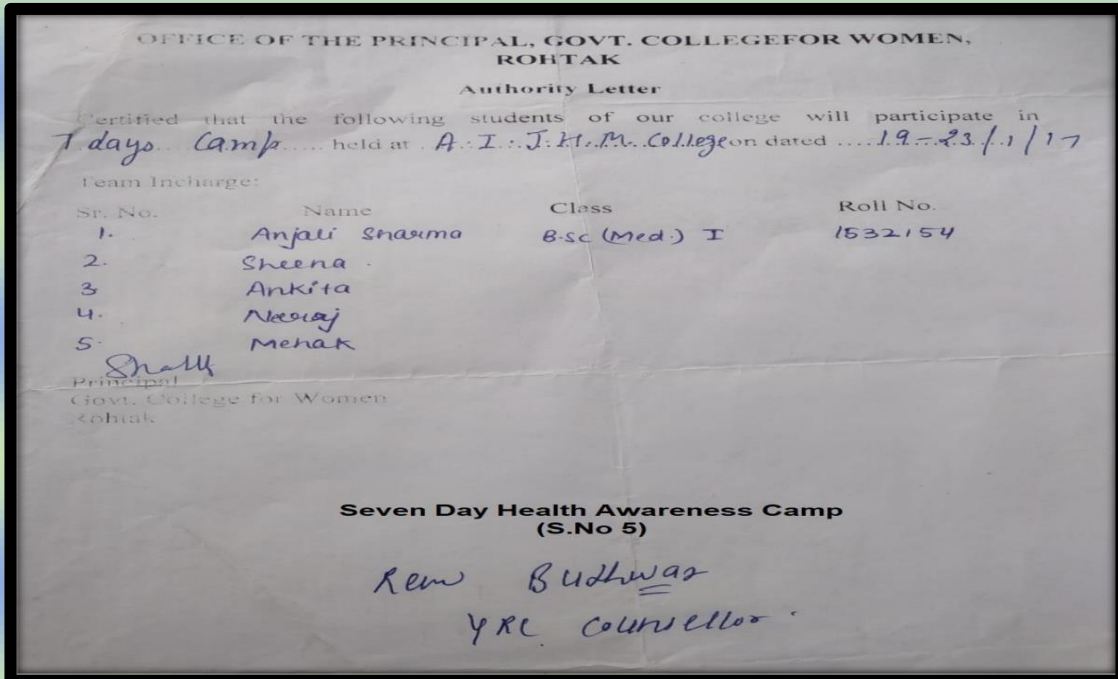 OFFICE OF THE PRINCIPAL, GOVT. COLLEGEFOR WOMEN,
ROHTAK
Authority Letter
Certified that the following students of our college will participate in
7 days Camp ..... held at . A. I. J. H. M. College on dated .... 19-23/1/17
Team Incharge:
Sr. No. Name Class Roll No.
1. Anjali Sharma B.Sc (Med.) I 1532154
2. Sheena
3 Ankita
4. Neeraj
5. Mehak
Principal
Govt. College for Women
Rohtak
Seven Day Health Awareness Camp
(S.No 5)
Budhwar
YRC Counsellor